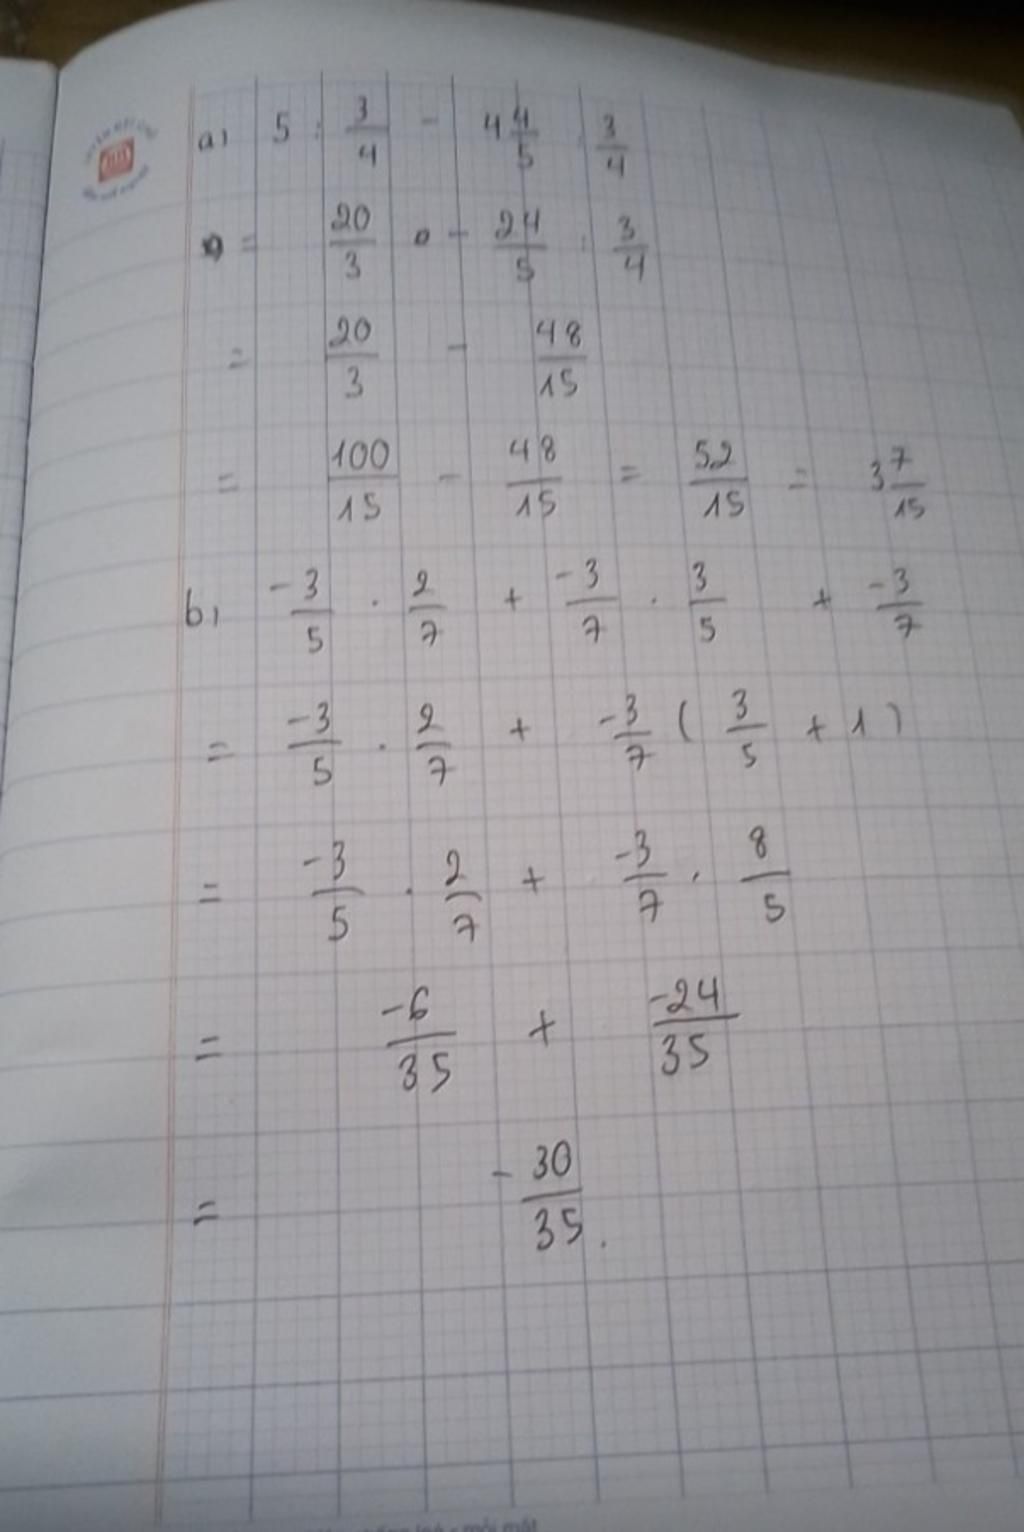 a) 5 : 3/4 - 4 4/5 : 3/4
= 20/3 - 24/5 : 3/4
= 20/3 - 48/15
= 100/15 - 48/15 = 52/15 = 3 7/15
b) -3/5 . 2/7 + -3/7 . 3/5 + -3/7
= -3/5 . 2/7 + -3/7 ( 3/5 + 1 )
= -3/5 . 2/7 + -3/7 . 8/5
= -6/35 + -24/35
= -30/35.